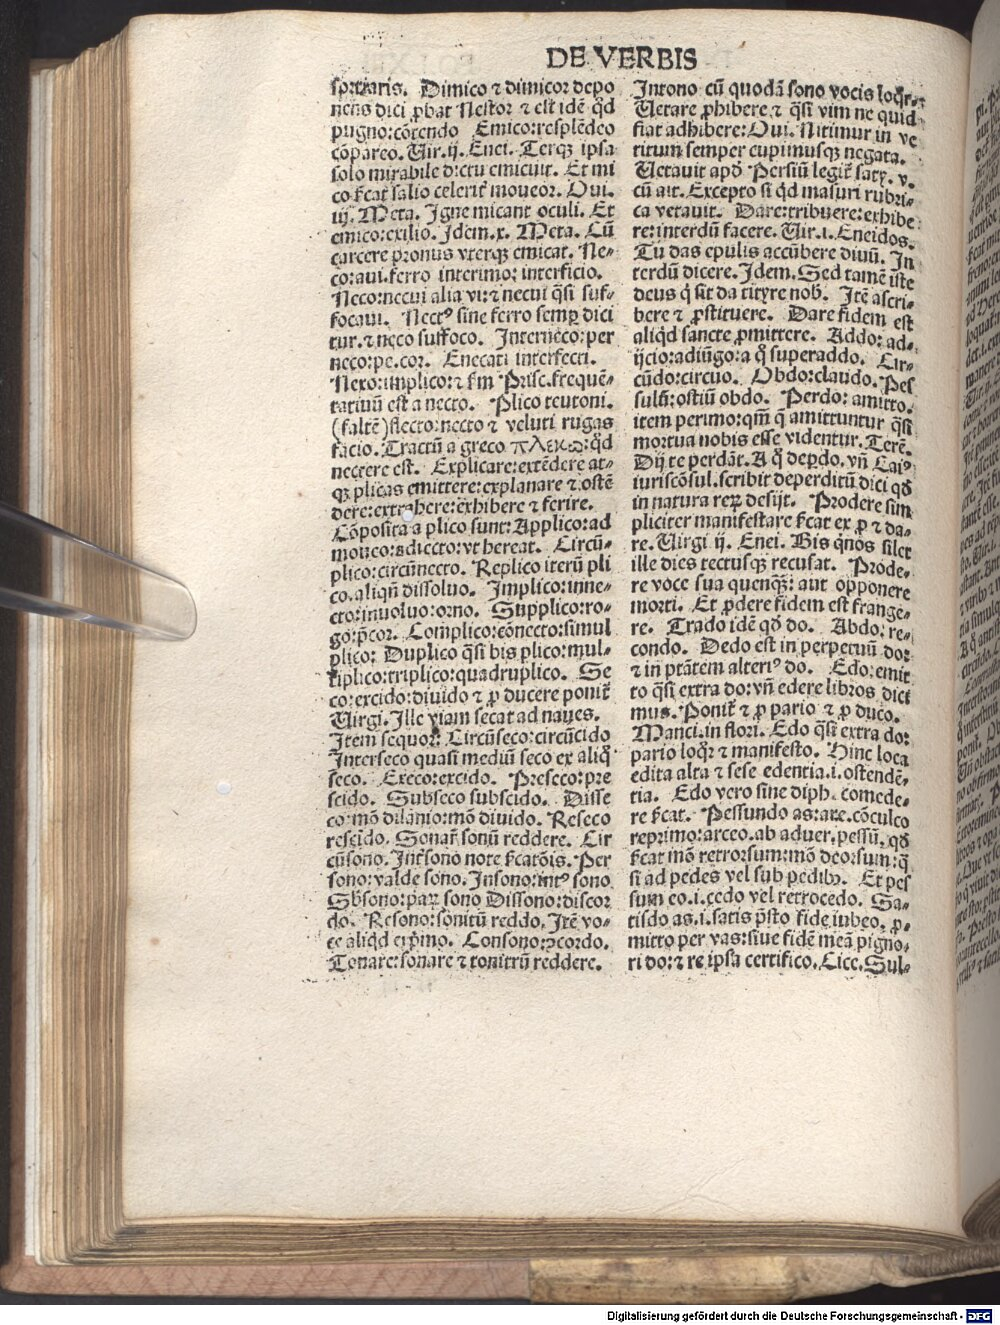 DE VERBIS
Dimico ⁊ dimicor depo
nens dici ꝓbat Nestor ⁊ est idē qd̄
pugno:cōtendo Emico:resplēdeo
cōpareo. Vir. ij. Enei. Terqꝫ ipsa
solo mirabile dictu emicuit. Et mi
co ſcat salio celerit̄ moueor. Oui.
iij. Meta. Igne micant oculi. Et
emico:exilio. Idem. x. Meta. Cū
carcere pronus vterqꝫ emicat. Ne-
co:aui.ferro interimo: interficio.
Neco:necui alia vi:⁊ necui qsi suf-
focaui. Nectꝰ sine ferro semp dici
tur.⁊ neco suffoco. Interneco:per
neco:pe.cor. Enecati interfecti.
Nexo:implico:⁊ fm Prisc.frequē-
tatiuū est a necto. Plico teutoni.
(faltē)flecto:necto ⁊ veluti rugas
facio. Tractū a greco πλεκω:qd̄
nectere est. Explicare:extēdere at-
qꝫ plicas emittere:explanare ⁊ ostē
dere:extrahere:exhibere ⁊ ferire.
Cōposita a plico sunt:Applico:ad
moueo:adiecto:vt hereat. Circū-
plico:circūnecto. Replico iterū pli
co.aliqn̄ dissoluo. Implico:inne-
cto:inuoluo:orno. Supplico:ro-
go:p̄cor. Complico:cōnecto:simul
plico: Duplico qsi bis plico:mul-
tiplico:triplico:quadruplico. Se
co:excido:diuido ⁊ ꝓ ducere ponit̄
Virgi. Ille viam secat ad naues.
Item sequor. Circūseco:circūcido
Interseco quasi mediū seco ex aliq̊
seco. Execo:excido. Preseco:pre
scido. Subseco subscido. Disse
co:mō dilanio:mō diuido. Reseco
rescido. Sonar̄ sonū reddere. Cir
cūsono. Int̄sono note ſcatōis. Per
sono:valde sono. Insono:intꝰ sono
Obsono:paꝝ sono Dissono:discor
do. Resono:sonitū reddo. Itē vo-
ce aliqd exp̄mo. Consono:ↄcordo.
Tonare:sonare ⁊ tonitrū reddere.
Intono cū quodā sono vocis loq̊r.
Vetare ꝓhibere ⁊ qsi vim ne quid
fiat adhibere:Oui. Nitimur in ve
titum semper cupimusqꝫ negata.
Vetauit apd̄ Persiū legit̄ saty. v.
cū ait. Excepto si qd masuri rubri-
ca vetauit. Dare:tribuere:exhibe
re:interdū facere. Vir.i. Eneidos.
Tu das epulis accūbere diuū. In
terdū dicere. Idem. Sed tamē iste
deus q̇ sit da tityre nob̄. Itē ascri-
bere ⁊ ꝓstituere. Dare fidem est
aliqd sancte ꝓmittere. Addo: ad-
ijcio:adiūgo:a q̊ superaddo. Cir-
cūdo:circuo. Obdo:claudo. Pes
sulū:ostiū obdo. Perdo: amitto.
item perimo:qm̄ q̄ amittuntur qsi
mortua nobis esse videntur. Terē.
Dij te perdāt. A q̊ deꝑdo. vn̄ Caiꝰ
iuriscōsul.scribit deperditū dici qd̄
in natura reꝝ desijt. Prodere sim
pliciter manifestare ſcat ex ꝓ ⁊ da-
re. Virgi ij. Enei. Bis qnos silet
ille dies tectusqꝫ recusat. Prode-
re voce sua quenqꝫ: aut opponere
morti. Et ꝓdere fidem est frange-
re. Trado idē qd̄ do. Abdo: re-
condo. Dedo est in perpetuū do:
⁊ in ptātem alteriꝰ do. Edo:emit
to qsi extra do:vn̄ edere libros dici
mus. Ponit̄ ⁊ ꝓ pario ⁊ ꝓ duco.
Manci.in flori. Edo qsi extra do:
pario loq̊r ⁊ manifesto. Hinc loca
edita alta ⁊ sese edentia.i.ostendē-
tia. Edo vero sine diph. comede-
re ſcat. Pessundo as:are.cōculco
reprimo:arceo.ab aduer.pessū.qd̄
ſcat mō retrorsum:mō deorsum:q̄
si ad pedes vel sub pedibꝫ. Et pes
sum eo.i.cedo vel retrocedo. Sa-
tisdo as.i.satis p̄sto fide iubeo, ꝓ-
mitto per vas:siue fidē meā pigno-
ri do:⁊ re ipsa certifico. Cice. Sul-
Digitalisierung gefördert durch die Deutsche Forschungsgemeinschaft - DFG